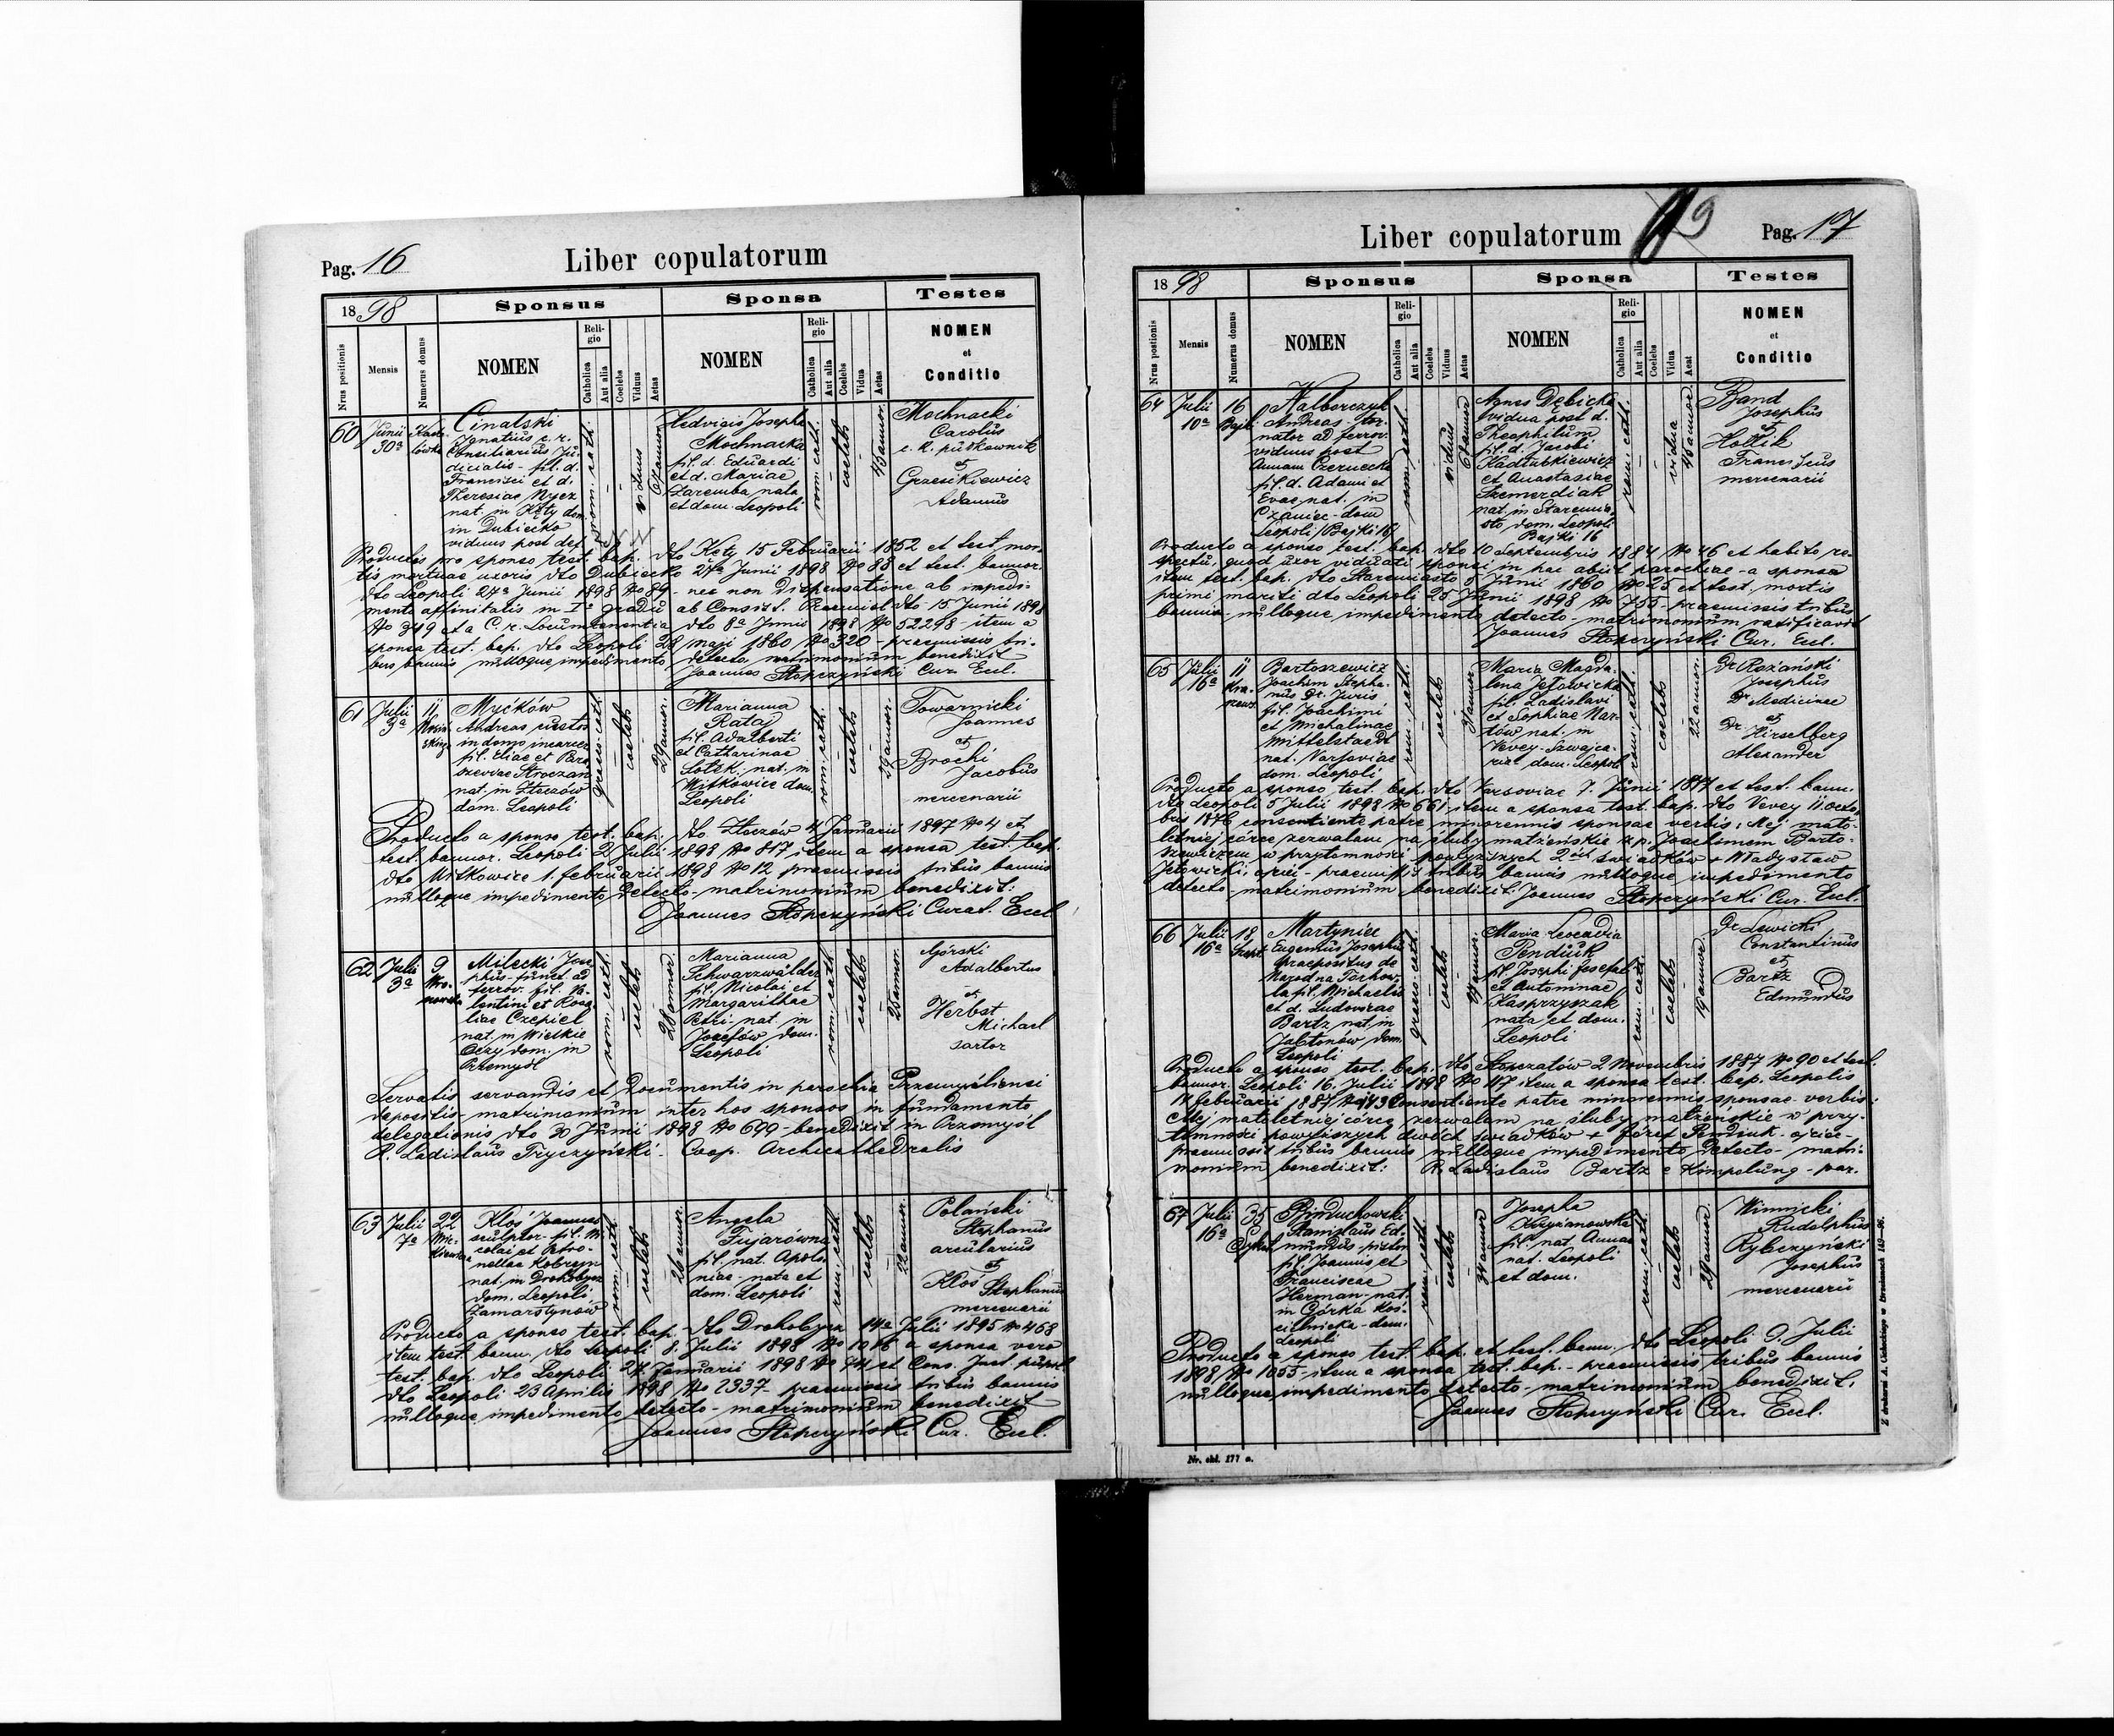 Pag. 16
Liber copulatorum
1898
Sponsus
Sponsa
Testes
Nrus positionis
Mensis
Numerus domus
NOMEN
Religio
Catholica
Aut alia
Coelebs
Viduus
Aetas
NOMEN
Religio
Catholica
Aut alia
Coelebs
Vidua
Aetas
NOMEN
et
Conditio
60
Junii
30a
Cinalski
Ignatius c. r.
Consiliarius Ju-
dicialis - fil. d.
Francisci et d.
Theresiae Nycz
nat. in Kęty dom.
in Dubiecko
viduus post def.
rom. cath.
viduus
Hedvigis Josepha
Mochnacka
fil. d. Eduardi
et d. Mariae
Zaremba nata
et dom. Leopoli
rom. cath.
coelebs
Mochnacki
Carolus
c. k. pułkownik
et
Adamus
Productis pro sponso test. bap. dto Kęty 15 Februarii 1852 et test. mor-
tis mortuae uxoris dto Dubiecko 27a Junii 1898 No 88 et test. bannor.
dto Leopoli 27a Junii 1898 No 89 - nec non dispensatione ab impedi-
mento affinitatis in Io gradu ab Consist. dto 15 Junii 1898
No 349 et a C. r. Locumtenentia dto 8a Junii 1898 No 52298 - item a
sponsa test. bap. dto Leopoli 28 maji 1860 No 320 - praemissis tri-
bus bannis nulloque impedimento detecto matrimonium benedixit
Joannes Stopczyński Cur. Eccl.
61
Julii
3a
11
Myćków
Andreas custos
in domo incarcer.
fil. Eliae et Para-
scevae Stroczan
nat. in Złoczów
dom. Leopoli
graeco cath.
coelebs
29 annor.
Marianna
Rataj
fil. Adalberti
et Catharinae
Sołek nat. in
Mitkowice dom.
Leopoli
rom. cath.
coelebs
29 annor.
Towarnicki
Joannes
et
Brochi
Jacobus
mercenarii
Producto a sponso test. bap. dto Złoczów 4 Januarii 1897 No 4 et
test. bannor. Leopoli 2 Julii 1898 No 817 item a sponsa test. bap.
dto Mitkowice 1. februarii 1898 No 12 praemissis tribus bannis
nulloque impedimento detecto - matrimonium benedixit:
Joannes Stopczyński Curat. Eccl.
62
Julii
3a
9
Wro-
nowska
Milecki Jose-
phus - funct. ad
ferrov. fil. Va-
lentini et Rosa-
liae Czepiel
nat. in Wielkie
Oczy dom. in
Przemyśl
rom. cath.
coelebs
28 annor.
Marianna
Schwarzwälder
fil. Nicolai et
Margarithae
Petri - nat. in
Josefów dom.
Leopoli
rom. cath.
coelebs
Górski
Adalbertus
et
Herbst
Michael
sartor
Servatis servandis et documentis in parochia Przemysliensi
depositis - matrimonium inter hos sponsos in fundamento
delegationis dto 30 Junii 1898 No 699 - benedixit in Przemyśl
R. Ladislaus Tryczyński - Coop. Archicathedralis
63
Julii
7a
22
Mic-
kiewicza
Kłoś Joannes
sculptor - fil. Ni-
colai et Petro-
nellae Kobryn
nat. in Drohobycz
dom. Leopoli
Zamarstynów
rom. cath.
coelebs
26 annor.
Angela
Fujarówna
fil. nat. Apolo-
niae - nata et
dom. Leopoli
rom. cath.
coelebs
22 annor.
Polański
Stephanus
arcularius
et
Kłos Stephanus
mercenarii
Producto a sponso test. bap. dto Drohobycz 14a Julii 1895 No 468
item test. bann. dto Leopoli 8. Julii 1898 No 1016 a sponsa vero
test. bap. dto Leopoli 27 Januarii 1898 No 74 et Cons. Jud. pupil.
dto Leopoli 23 Aprilis 1898 No 2337 praemissis tribus bannis
nulloque impedimento detecto - matrimonium benedixit
Joannes Stopczyński Cur. Eccl.
Liber copulatorum
Pag. 17
1898
Sponsus
Sponsa
Testes
Nrus positionis
Mensis
Numerus domus
NOMEN
Religio
Catholica
Aut alia
Coelebs
Viduus
Aetas
NOMEN
Religio
Catholica
Aut alia
Coelebs
Vidua
Aeat
NOMEN
et
Conditio
64
Julii
10a
16
Bajki
Nalborczyk
Andreas - 
nator ad ferrov.
viduus post
Annam Czernecka
fil. d. Adami et
Evae nat. in
Czaniec - dom
Leopoli (Bajki 16)
rom. cath.
viduus
Agnes Dębicka
vidua post d.
Theophilum
fil. d. Jacobi
Kadłubkiewicz
et Anastasiae
Szmerdiak
nat. in Staremia-
sto dom. Leopoli
Bajki 16
rom. cath.
vidua
Band
Josephus
et
Hollik
Franciscus
mercenarii
Producto a sponso test. bap. dto 10 Septembris 1884 No 46 et habito re-
spectu, quod uxor viduati sponsi in hac abiit parochiae - a sponsa
item test. bap. dto Staremiasto 5 Junii 1860 No 25 et test. mortis
primi mariti dto Leopoli 25 Junii 1898 No 755 - praemissis tribus
bannis nulloque impedimento detecto - matrimonium ratificavit
Joannes Stopczyński Cur. Eccl.
65
Julii
16a
11
Kra-
szews.
Bartoszewicz
Joachim Stepha-
nus Dr. Juris
fil. Joachimi
et Michalinae
Mittelstaedt
nat. Varsoviae
dom. Leopoli
rom. cath.
coelebs
31 annor.
Maria Magda-
lena Jełowicka
fil. Ladislavi
et Sophiae Nar-
tów nat. in
Vevey - Szwajca-
ria dom. Leopoli
rom. cath.
coelebs
22 annor.
Dr. Rożański
Josephus
Dr. Medicinae
et
Dr. Hirschberg
Alexander
Producto a sponso test. bap. dto Varsoviae 7. Junii 1871 et test. bann.
dto Leopoli 5 Julii 1898 No 661 item a sponsa test. bap. dto Vevey 11. Octo-
bris 1876 consentiente patre minorennis sponsae verbis: Mej mało-
letniej córce zezwalam na śluby małżeńskie z p. Joachimem Barto-
szewiczem w przytomności powyższych 2óch świadków + Władysław
Jełowicki, ojciec - praemissis tribus bannis nulloque impedimento
detecto - matrimonium benedixit. Joannes Stopczyński Cur. Eccl.
66
Julii
16a
18
Martyniec
Eugenius Josephus
praepositus de
Narodna Torhow-
la fil. Michaelis
et d. Ludovicae
Bartz nat. in
Jabłonów dom.
Leopoli
graeco cath.
coelebs
Maria Leocadia
Penduik
fil. Josephi Josefat
et Antoninae
Kasprzyszak
nata et dom.
Leopoli
rom. cath.
coelebs
19 annor.
Dr. Lewicki
Constantinus
et
Bartz
Edmundus
Producto a sponso test. bap. dto 2 Novembris 1887 No 90 et test.
bannor. Leopoli 16. Julii 1898 No 117 item a sponsa test. bap. Leopolis
februarii 1887 consentiente patre minorennis sponsae - verbis:
Mej małoletniej córce zezwalam na śluby małżeńskie w przy-
tomności powyższych dwóch świadków + Józef Penduik - ojciec -
praemissis tribus bannis nulloque impedimento detecto - matri-
monium benedixit: R. Ladislaus Bartz e Kimpolung - par.
67
Julii
16a
35
Pinduchowski
Stanislaus Ed-
mundus - pistor
fil. Joannis et
Franciscae
Herman - nat.
in Górka Koś-
cielnicka - dom.
Leopoli
rom. cath.
coelebs
34 annor
Josepha
Krzyżanowska
fil. nat. Annae
nat. Leopoli
et dom.
rom. cath.
coelebs
29 annor.
Winnicki
Rudolphus
Rybczyński
Josephus
mercenarii
Producto a sponso test. bap. et test. bann. dto Leopoli 9. Julii
1898 No 1055 - item a sponsa test. bap. - praemissis tribus bannis
nulloque impedimento detecto - matrimonium benedixit.
Joannes Stopczyński Cur. Eccl.
Nr. obl. 177 a.